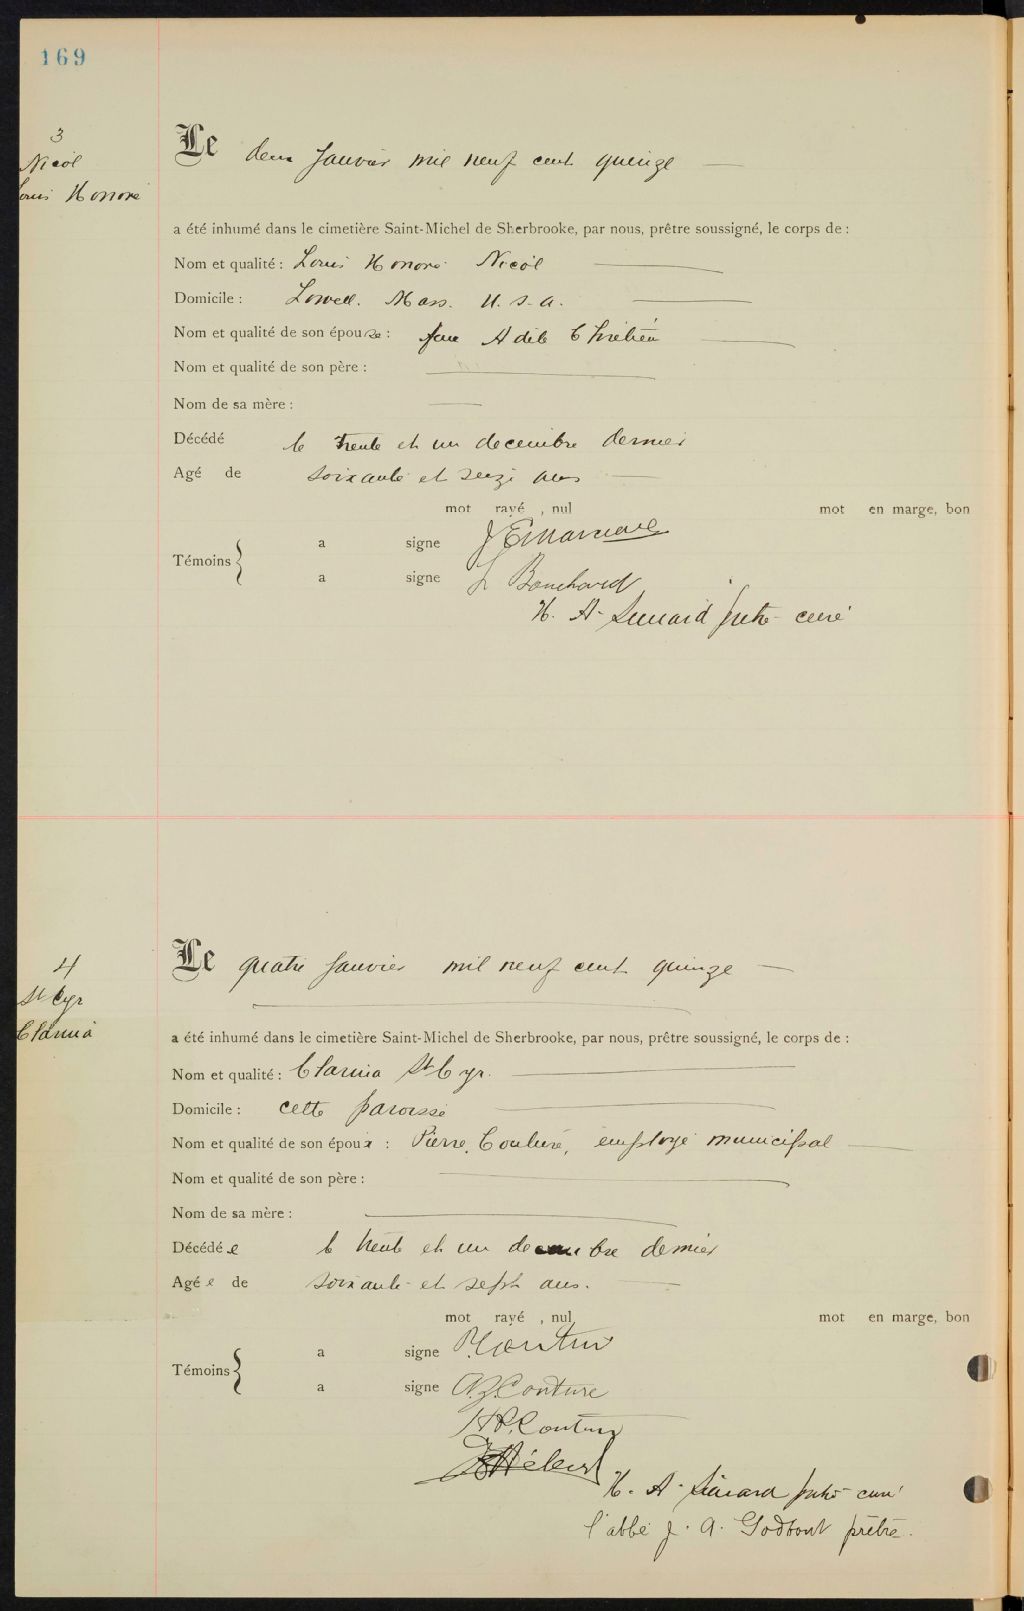 169
3
Nicol
Louis Honoré
Le deux Janvier mil neuf cent quinze
a été inhumé dans le cimetière Saint-Michel de Sherbrooke, par nous, prêtre soussigné, le corps de :
Nom et qualité : Louis Honoré Nicol
Domicile : Lowell. Mass. U. S. A.
Nom et qualité de son épouse : feue Adèle Chrétien
Nom et qualité de son père :
Nom de sa mère :
Décédé le trente et un decembre dernier
Agé de soixante et seize ans
mot rayé , nul mot en marge, bon
Témoins { a signe J E Marcoux
a signe L Bouchard
H. A. Simard ptre curé
4
St Cyr
Clarina
Le quatre Janvier mil neuf cent quinze
a été inhumé dans le cimetière Saint-Michel de Sherbrooke, par nous, prêtre soussigné, le corps de :
Nom et qualité : Clarina St Cyr.
Domicile : cette paroisse
Nom et qualité de son époux : Pierre Couture, employé municipal
Nom et qualité de son père :
Nom de sa mère :
Décédée le trente et un decembre dernier
Agée de soixante et sept ans.
mot rayé , nul mot en marge, bon
Témoins { a signe P. Couture
a signe A.Z. Couture
H P. Couture
Hébert
H. A. Simard ptre curé
l'abbé J. A. Godbout prêtre.